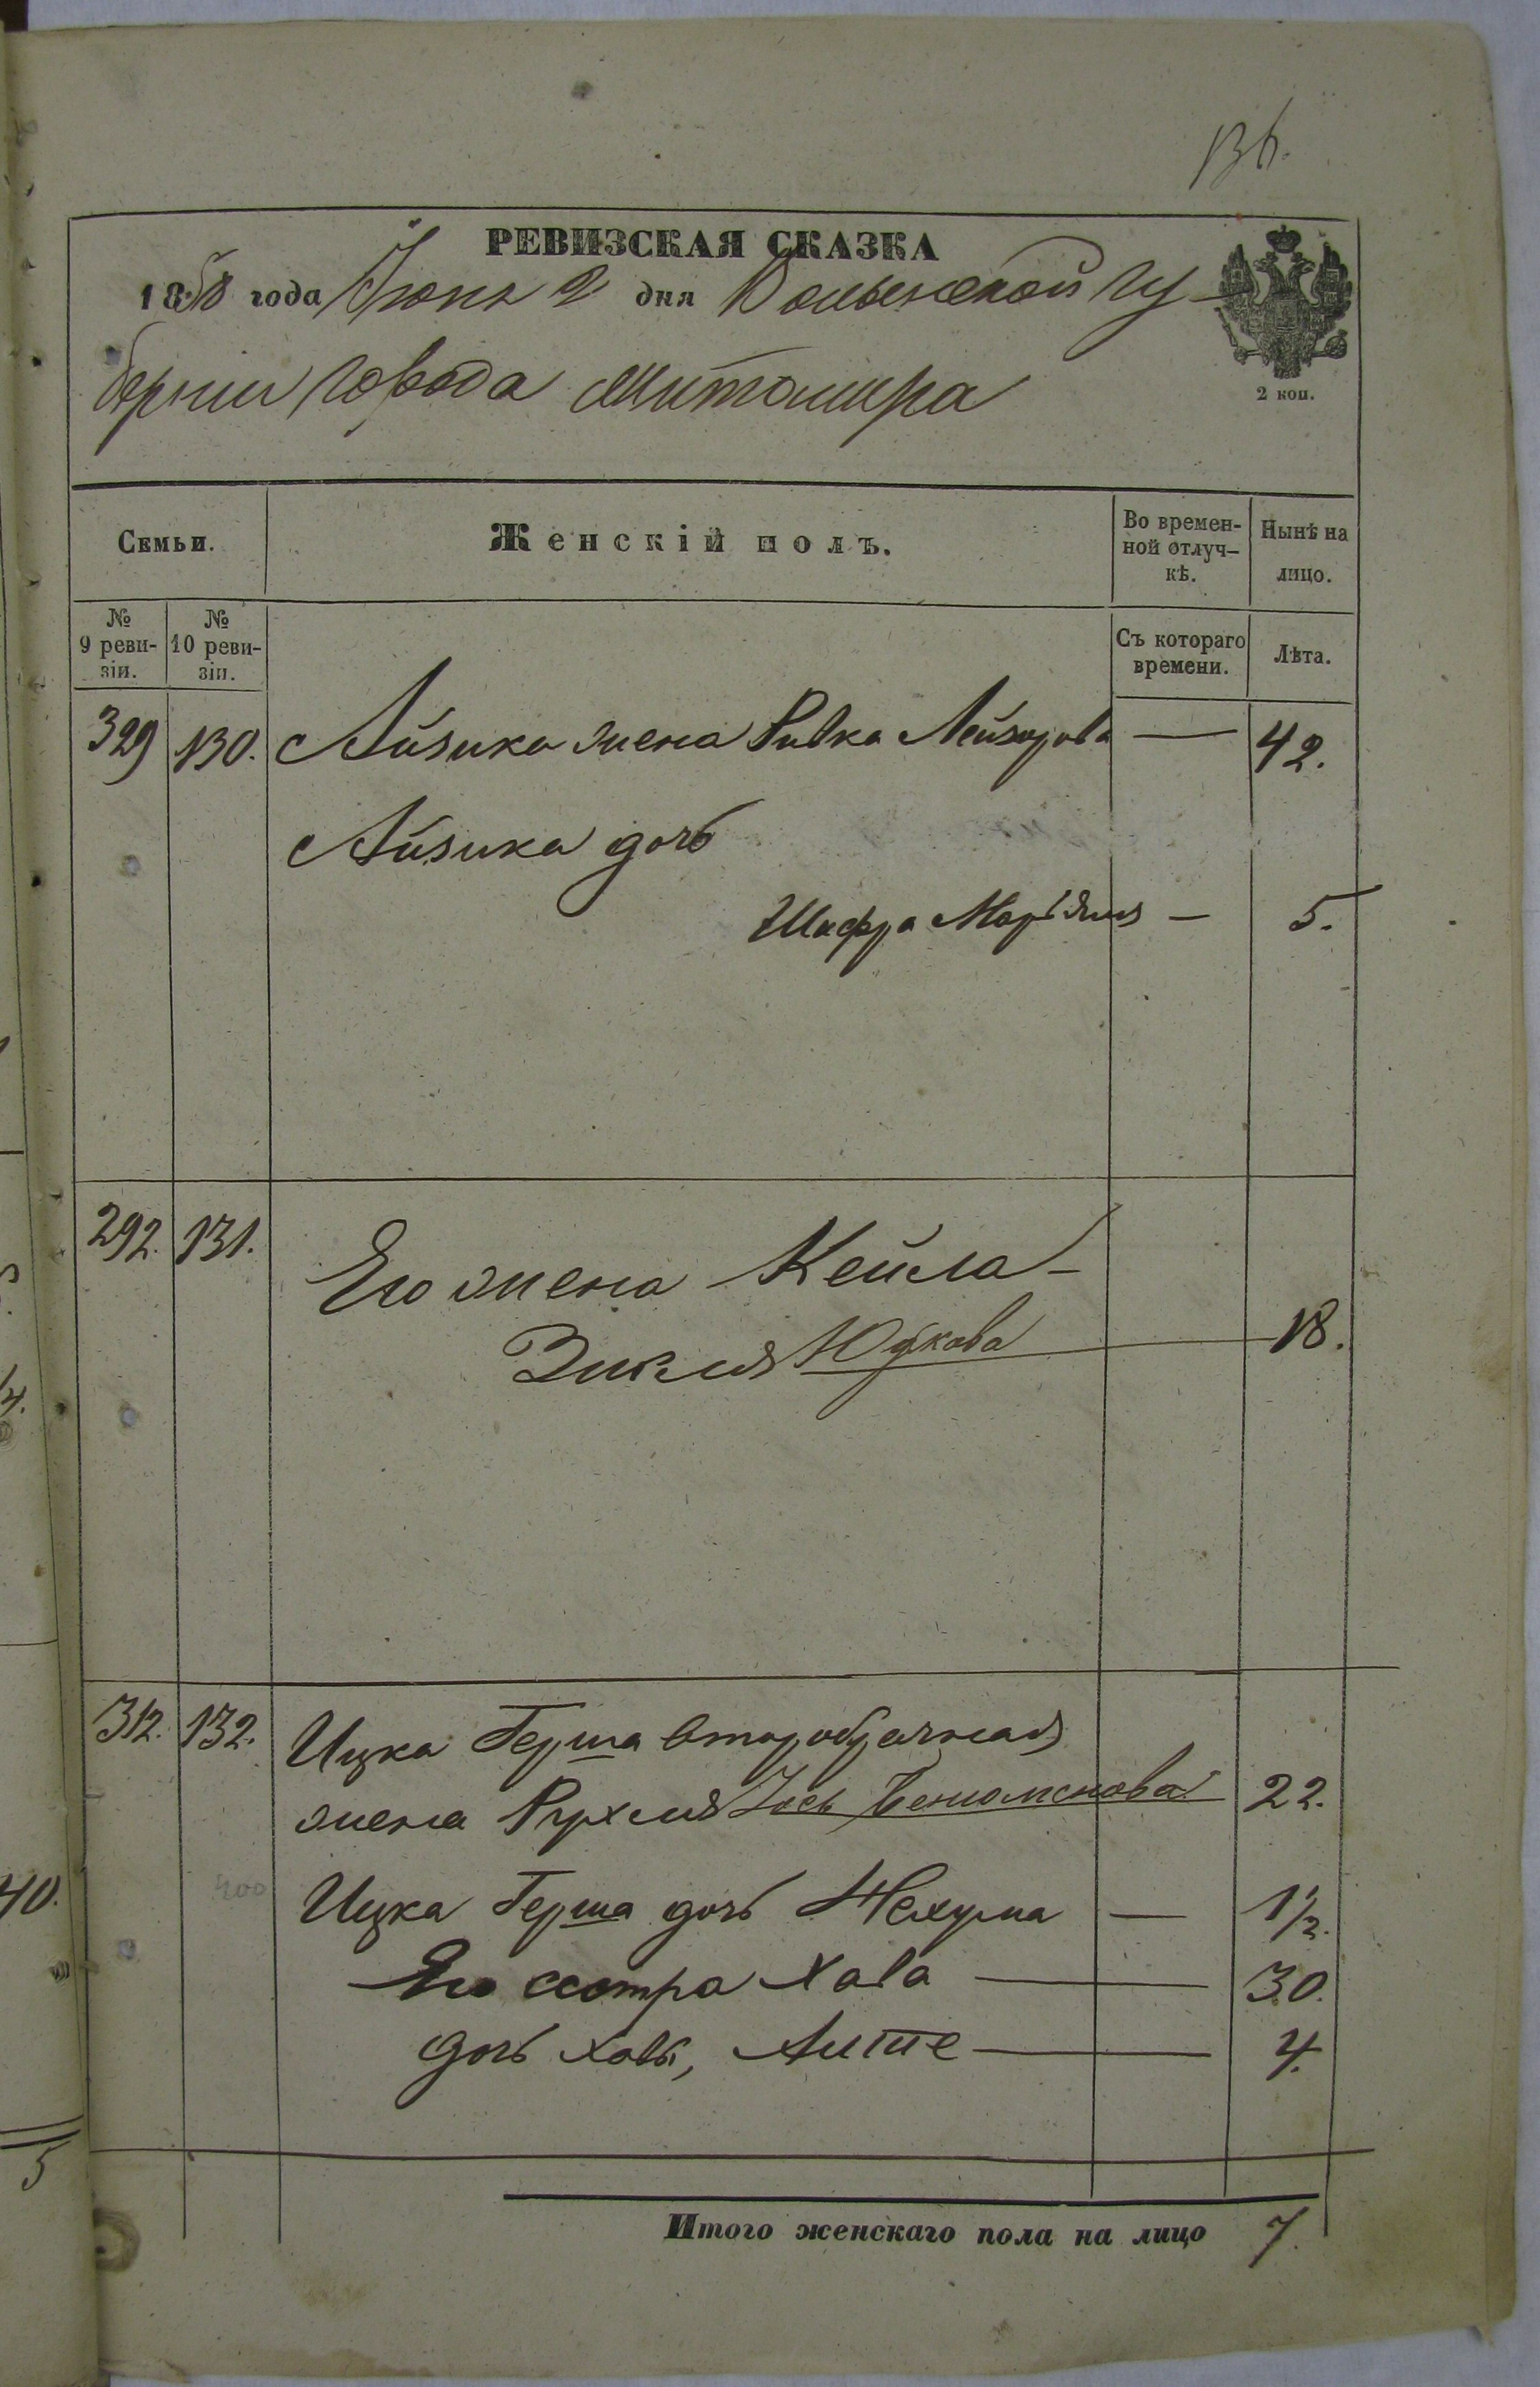 136.
РЕВИЗСКАЯ СКАЗКА
1858 года Июня 2 дня Волынской гу-
берніи города Житомира
2 коп.
Семьи.
Женскій полъ.
Во времен-
ной отлуч-
кѣ.
Нынѣ на
лицо.
№
9 реви-
зіи.
№
10 реви-
зіи.
Съ котораго
времени.
Лѣта.
329 130. Айзика жена Ривка Лейзорова — 42.
Айзика дочь
Шифра Марьямъ — 5.
292. 131. Его жена Кейла-
Дикля Юдкова 18.
312. 132. Ицка Герша второбрачная
жена Рухля Іось Беніоминова 22.
400
Ицка Герша дочь Нехума — 1½.
Его сестра Хава — 30.
дочь Хавы, — 4.
Итого женскаго пола на лицо 7.